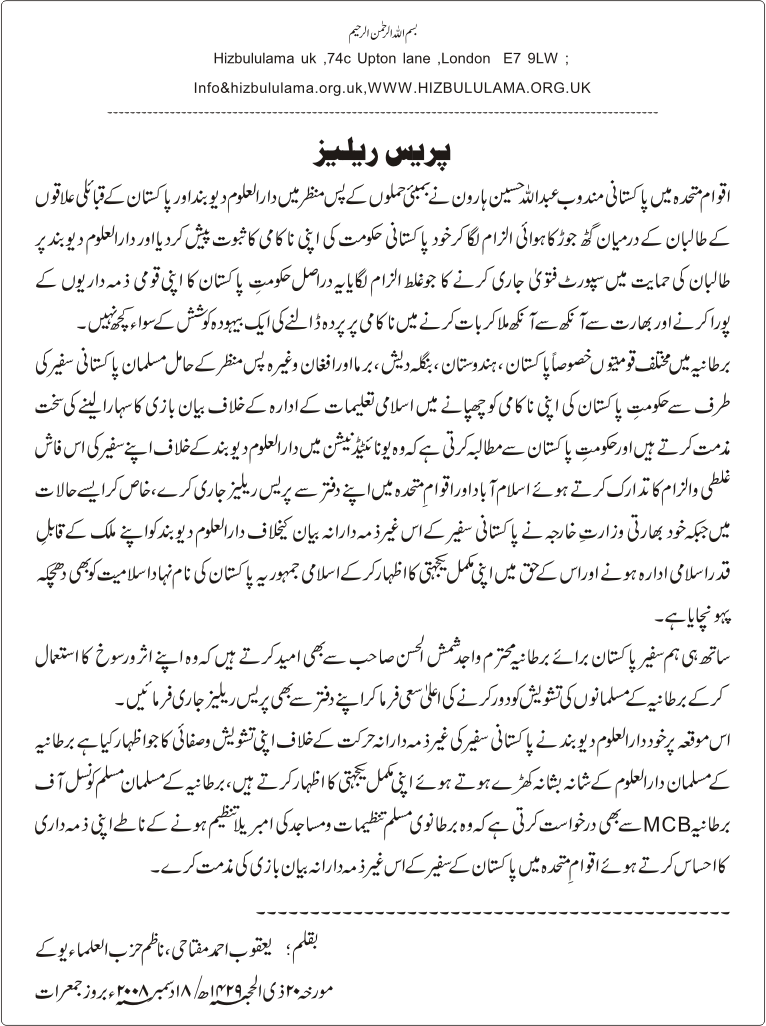 بسم اللہ الرحمٰن الرحیم
Hizbululama uk ,74c Upton lane ,London E7 9LW ;
Info&hizbululama.org.uk,WWW.HIZBULULAMA.ORG.UK
پریس ریلیز
اقوام متحدہ میں پاکستانی مندوب عبداللہ حسین ہارون نے بمبئی حملوں کے پس منظر میں دارالعلوم دیوبند اور پاکستان کے قبائلی علاقوں
کے طالبان کے درمیان گٹھ جوڑ کا ہوائی الزام لگا کر خود پاکستانی حکومت کی اپنی ناکامی کا ثبوت پیش کر دیا اور دارالعلوم دیوبند پر
طالبان کی حمایت میں سپورٹ فتویٰ جاری کرنے کا جو غلط الزام لگایا یہ دراصل حکومتِ پاکستان کا اپنی قومی ذمہ داریوں کے
پورا کرنے اور بھارت سے آنکھ سے آنکھ ملا کر بات کرنے میں ناکامی پر پردہ ڈالنے کی ایک بیہودہ کوشش کے سواء کچھ نہیں ۔
برطانیہ میں مختلف قومیتوں خصوصاً پاکستان ، ہندوستان ، بنگلہ دیش ، برما اور افغان وغیرہ پس منظر کے حامل مسلمان پاکستانی سفیر کی
طرف سے حکومتِ پاکستان کی اپنی ناکامی کو چھپانے میں اسلامی تعلیمات کے ادارہ کے خلاف بیان بازی کا سہارا لینے کی سخت
مذمت کرتے ہیں اور حکومتِ پاکستان سے مطالبہ کرتی ہے کہ وہ یونائیٹیڈ نیشن میں دارالعلوم دیوبند کے خلاف اپنے سفیر کی اس فاش
غلطی والزام کا تدارک کرتے ہوئے اسلام آباد اور اقوامِ متحدہ میں اپنے دفتر سے پریس ریلیز جاری کرے ، خاص کر ایسے حالات
میں جبکہ خود بھارتی وزارتِ خارجہ نے پاکستانی سفیر کے اس غیر ذمہ دارانہ بیان کیخلاف دارالعلوم دیوبند کو اپنے ملک کے قابلِ
قدر اسلامی ادارہ ہونے اور اس کے حق میں اپنی مکمل یکجہتی کا اظہار کر کے اسلامی جمہوریہ پاکستان کی نام نہاد اسلامیت کو بھی دھچکہ
پہونچایا ہے ۔
ساتھ ہی ہم سفیر پاکستان برائے برطانیہ محترم واجد شمش الحسن صاحب سے بھی امید کرتے ہیں کہ وہ اپنے اثر ورسوخ کا استعمال
کر کے برطانیہ کے مسلمانوں کی تشویش کو دور کرنے کی اعلیٰ سعی فرما کر اپنے دفتر سے بھی پریس ریلیز جاری فرمائیں ۔
اس موقعہ پر خود دارالعلوم دیوبند نے پاکستانی سفیر کی غیر ذمہ دارانہ حرکت کے خلاف اپنی تشویش وصفائی کا جو اظہار کیا ہے برطانیہ
کے مسلمان دارالعلوم کے شانہ بشانہ کھڑے ہوتے ہوئے اپنی مکمل یکجہتی کا اظہار کرتے ہیں ، برطانیہ کے مسلمان مسلم کونسل آف
برطانیہ MCB سے بھی درخواست کرتی ہے کہ وہ برطانوی مسلم تنظیمات ومساجد کی امبریلا تنظیم ہونے کے ناطے اپنی ذمہ داری
کا احساس کرتے ہوئے اقوامِ متحدہ میں پاکستان کے سفیر کے اس غیر ذمہ دارانہ بیان بازی کی مذمت کرے ۔
بقلم ؛ یعقوب احمد مفتاحی ، ناظم حزب العلماء یو کے
مورخہ ۲۰ ذی الحجہ ۱۴۲۹ھ/ ۱۸ دسمبر ۲۰۰۸ء بروز جمعرات